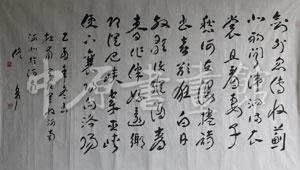 劍外忽傳收薊
北初聞涕淚滿衣
裳却看妻子
愁何在漫卷詩
書喜欲狂白日
放歌須縱酒青
春作伴好還鄉
即從巴峽穿巫峽
便下襄陽向洛陽
杜甫聞官軍收河南
河北